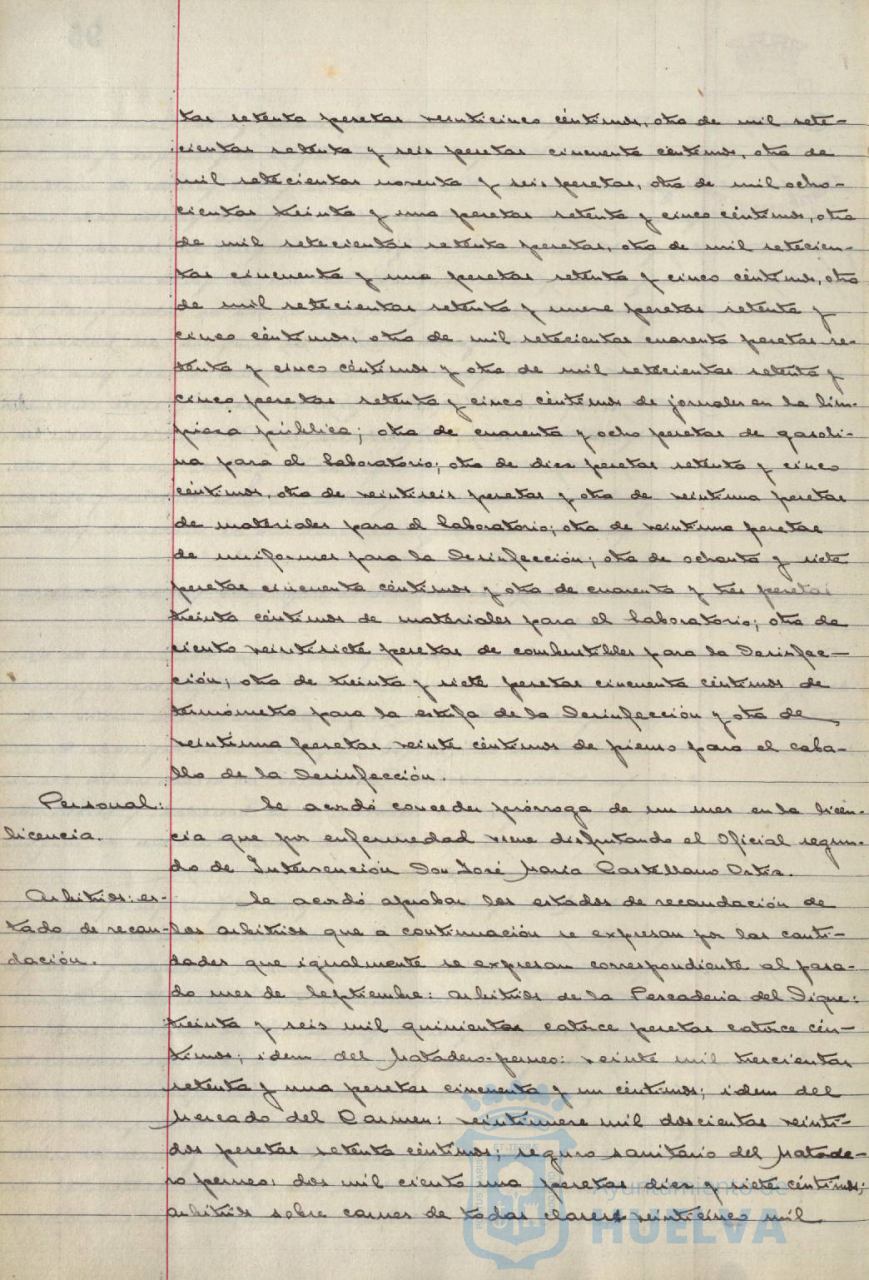 tas setenta pesetas veinticinco céntimos, otra de mil sete-
cientas setenta y seis pesetas cincuenta céntimos, otra de
mil setecientas noventa y seis pesetas, otra de mil ocho-
cientas treinta y una pesetas setenta y cinco céntimos, otra
de mil setecientas setenta pesetas, otra de mil setecien-
tas cincuenta y una pesetas setenta y cinco céntimos, otra
de mil setecientas setenta y nueve pesetas setenta y
cinco céntimos, otra de mil setecientas cuarenta pesetas se-
tenta y cinco céntimos y otra de mil setecientas setenta y
cinco pesetas setenta y cinco céntimos de jornales en la lim-
pieza pública; otra de cuarenta y ocho pesetas de gasoli-
na para el laboratorio; otra de diez pesetas setenta y cinco
céntimos, otra de veintiseis pesetas y otra de veintiuna pesetas
de materiales para el laboratorio; otra de veintiuna pesetas
de uniformes para la Desinfección; otra de ochenta y siete
pesetas cincuenta céntimos y otra de cuarenta y tres pesetas
treinta céntimos de materiales para el laboratorio; otra de
ciento veintisiete pesetas de combustibles para la Desinfec-
ción; otra de treinta y siete pesetas cincuenta céntimos de
termómetro para la estufa de la Desinfección y otra de
veintiuna pesetas veinte céntimos de pienso para el caba-
llo de la Desinfección.
Personal: Se acordó conceder prórroga de un mes en la licen-
licencia. cia que por enfermedad viene disfrutando el Oficial segun-
do de Intervención Don José María Castellano Ortiz.
Arbitrios: es- Se acordó aprobar los estados de recaudación de
tado de recau- los arbitrios que a continuación se expresan por las canti-
dación. dades que igualmente se expresan correspondiente al pasa-
do mes de Septiembre: arbitrios de la Pescaderia del Dique:
treinta y seis mil quinientas catorce pesetas catorce cén-
timos; idem del Matadero-perneo: veinte mil trescientas
setenta y una pesetas cincuenta y un céntimos; idem del
Mercado del Carmen: veintinueve mil doscientas veinti-
dos pesetas setenta céntimos; seguro sanitario del Matade-
ro perneo: dos mil ciento una pesetas diez y siete céntimos;
arbitrios sobre carnes de todas clases veinticinco mil
Ayuntamiento de
HUELVA